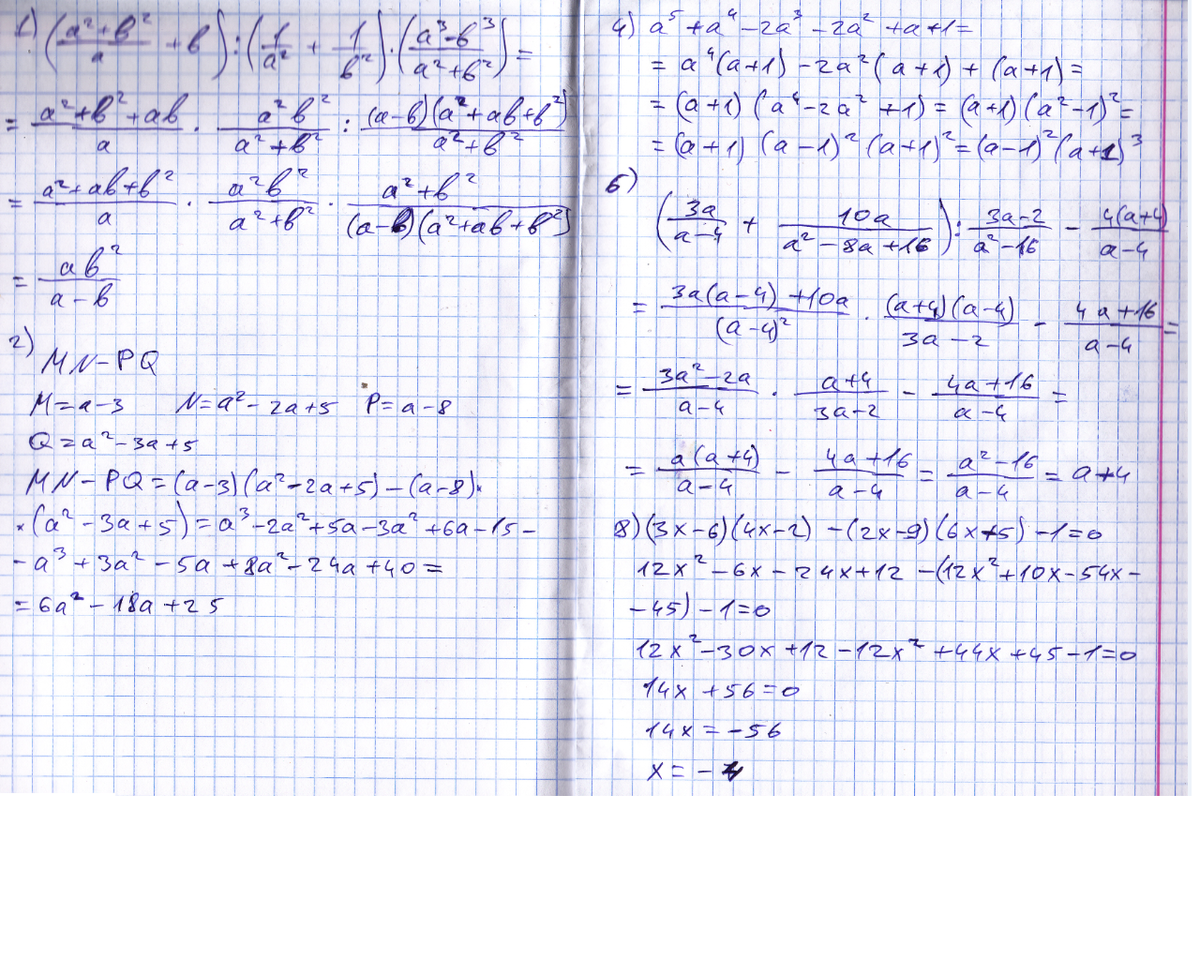 1) ((a²+b²)/a + b) : (1/a² + 1/b²) · ((a³-b³)/(a²+b²)) =
= (a²+b²+ab)/a · a²b²/(a²+b²) : (a-b)(a²+ab+b²)/(a²+b²)
= (a²+ab+b²)/a · a²b²/(a²+b²) · (a²+b²)/((a-b)(a²+ab+b²))
= ab²/(a-b)
2) MN-PQ
M=a-3 N=a²-2a+5 P=a-8
Q=a²-3a+5
MN-PQ=(a-3)(a²-2a+5)-(a-8)·
·(a²-3a+5)=a³-2a²+5a-3a²+6a-15-
-a³+3a²-5a+8a²-24a+40=
=6a²-18a+25
4) a⁵+a⁴-2a³-2a²+a+1=
= a⁴(a+1)-2a²(a+1)+(a+1)=
= (a+1)(a⁴-2a²+1)=(a+1)(a²-1)²=
= (a+1)(a-1)²(a+1)²=(a-1)²(a+1)³
6)
(3a/(a-4) + 10a/(a²-8a+16)) : (3a-2)/(a²-16) - 4(a+4)/(a-4)
= (3a(a-4)+10a)/(a-4)² · (a+4)(a-4)/(3a-2) - (4a+16)/(a-4) =
= (3a²-2a)/(a-4) · (a+4)/(3a-2) - (4a+16)/(a-4) =
= a(a+4)/(a-4) - (4a+16)/(a-4) = (a²-16)/(a-4) = a+4
8) (3x-6)(4x-2) -(2x-9)(6x+5) -1=0
12x²-6x-24x+12 -(12x²+10x-54x-
-45)-1=0
12x²-30x+12-12x²+44x+45-1=0
14x+56=0
14x=-56
x=-4